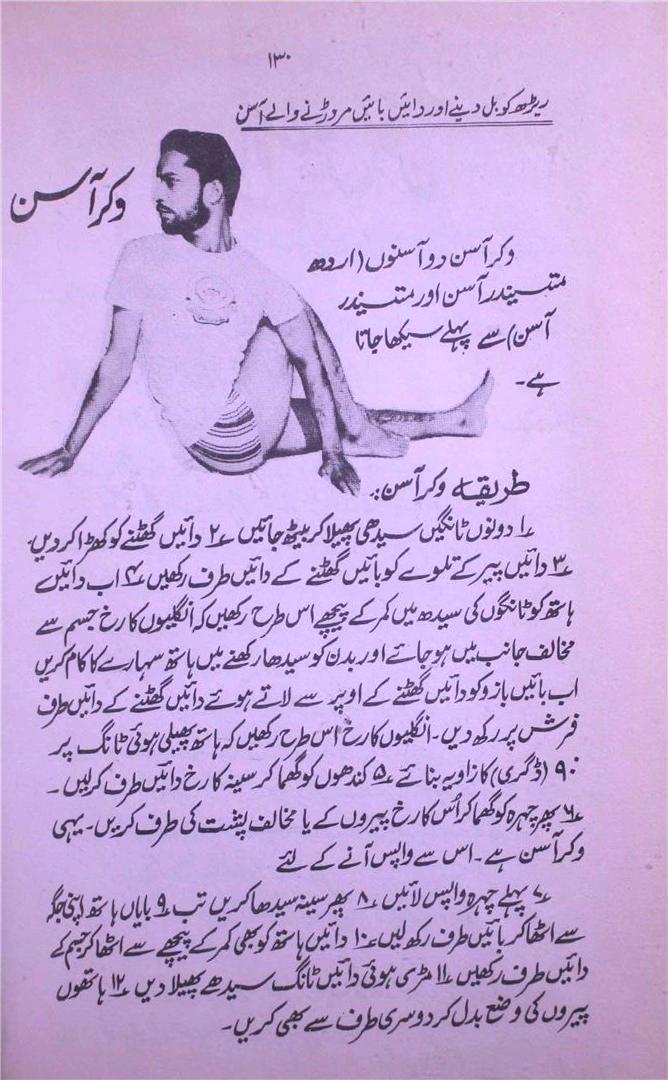 ۱۳۰
ریڑھ کو بل دینے اور دائیں بائیں مروڑنے والے آسن
وکر آسن
وکر آسن دو آسنوں (اردھ
متسیندر آسن اور متسیندر
آسن) سے پہلے سیکھا جاتا
ہے۔
طریقہ وکر آسن:
۱؎ دونوں ٹانگیں سیدھی پھیلا کر بیٹھ جائیں ۲؎ دائیں گھٹنے کو کھڑا کر دیں۔
۳؎ دائیں پیر کے تلوے کو بائیں گھٹنے کے دائیں طرف رکھیں ۴؎ اب دائیں
ہاتھ کو ٹانگوں کی سیدھ میں کمر کے پیچھے اس طرح رکھیں کہ انگلیوں کا رخ جسم سے
مخالف جانب میں ہو جائے اور بدن کو سیدھا رکھنے میں ہاتھ سہارے کا کام کریں
اب بائیں بازو کو دائیں گھٹنے کے اوپر سے لاتے ہوئے دائیں گھٹنے کے دائیں طرف
فرش پر رکھ دیں۔ انگلیوں کا رخ اس طرح رکھیں کہ ہاتھ پھیلی ہوئی ٹانگ پر
۹۰ (ڈگری) کا زاویہ بنائے ۵؎ کندھوں کو گھما کر سینہ کا رخ دائیں طرف کر لیں۔
۶؎ پھر چہرہ کو گھما کر اُس کا رخ پیروں کے یا مخالف پشت کی طرف کریں۔ یہی
وکر آسن ہے۔ اس سے واپس آنے کے لئے
۷؎ پہلے چہرہ واپس لائیں ۸؎ پھر سینہ سیدھا کریں تب ۹؎ بایاں ہاتھ اپنی جگہ
سے اٹھا کر بائیں طرف رکھ لیں ۱۰؎ دائیں ہاتھ کو بھی کمر کے پیچھے سے اٹھا کر جسم کے
دائیں طرف رکھیں ۱۱؎ مڑی ہوئی دائیں ٹانگ سیدھے پھیلا دیں ۱۲؎ ہاتھوں
پیروں کی وضع بدل کر دوسری طرف سے بھی کریں۔